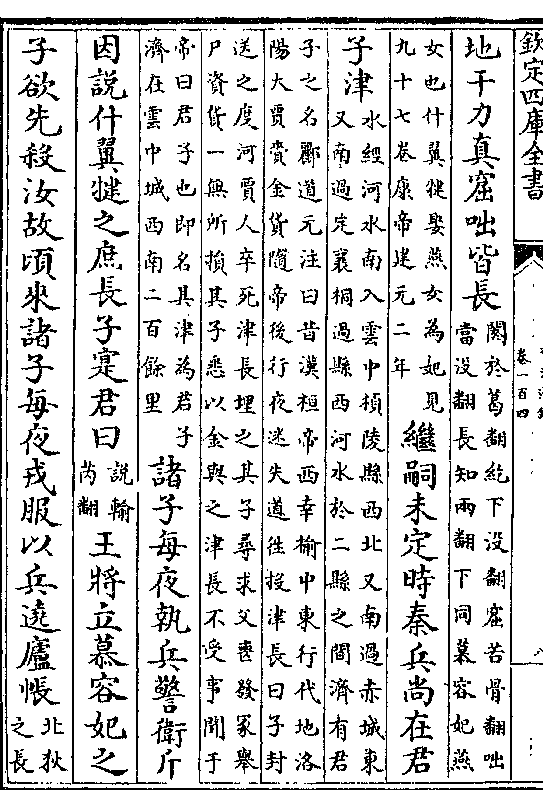 欽定四庫全書
卷一百四
地干力真窟咄皆長
閼於葛翻紇下没翻窟苦骨翻咄
當没翻長知兩翻下同慕容妃燕
女也什翼犍娶燕女為妃見
九十七卷康帝建元二年
繼嗣未定時秦兵尚在君
子津
水經河水南入雲中楨陵縣西北又南過赤城東
又南過定襄桐過縣西河水於二縣之間濟有君
子之名酈道元注曰昔漢桓帝西幸榆中東行代地洛
陽大賈賫金貨隨帝後行夜迷失道往投津長曰子封
送之度河賈人卒死津長埋之其子尋求父喪發冢舉
尸資貨一無所損其子悉以金與之津長不受事聞于
帝曰君子也即名其津為君子
濟在雲中城西南二百餘里
諸子每夜執兵警衛斤
因說什翼犍之庶長子寔君曰
說輸
芮翻
王將立慕容妃之
子欲先殺汝故頃來諸子每夜戎服以兵遶廬帳
北狄
之長